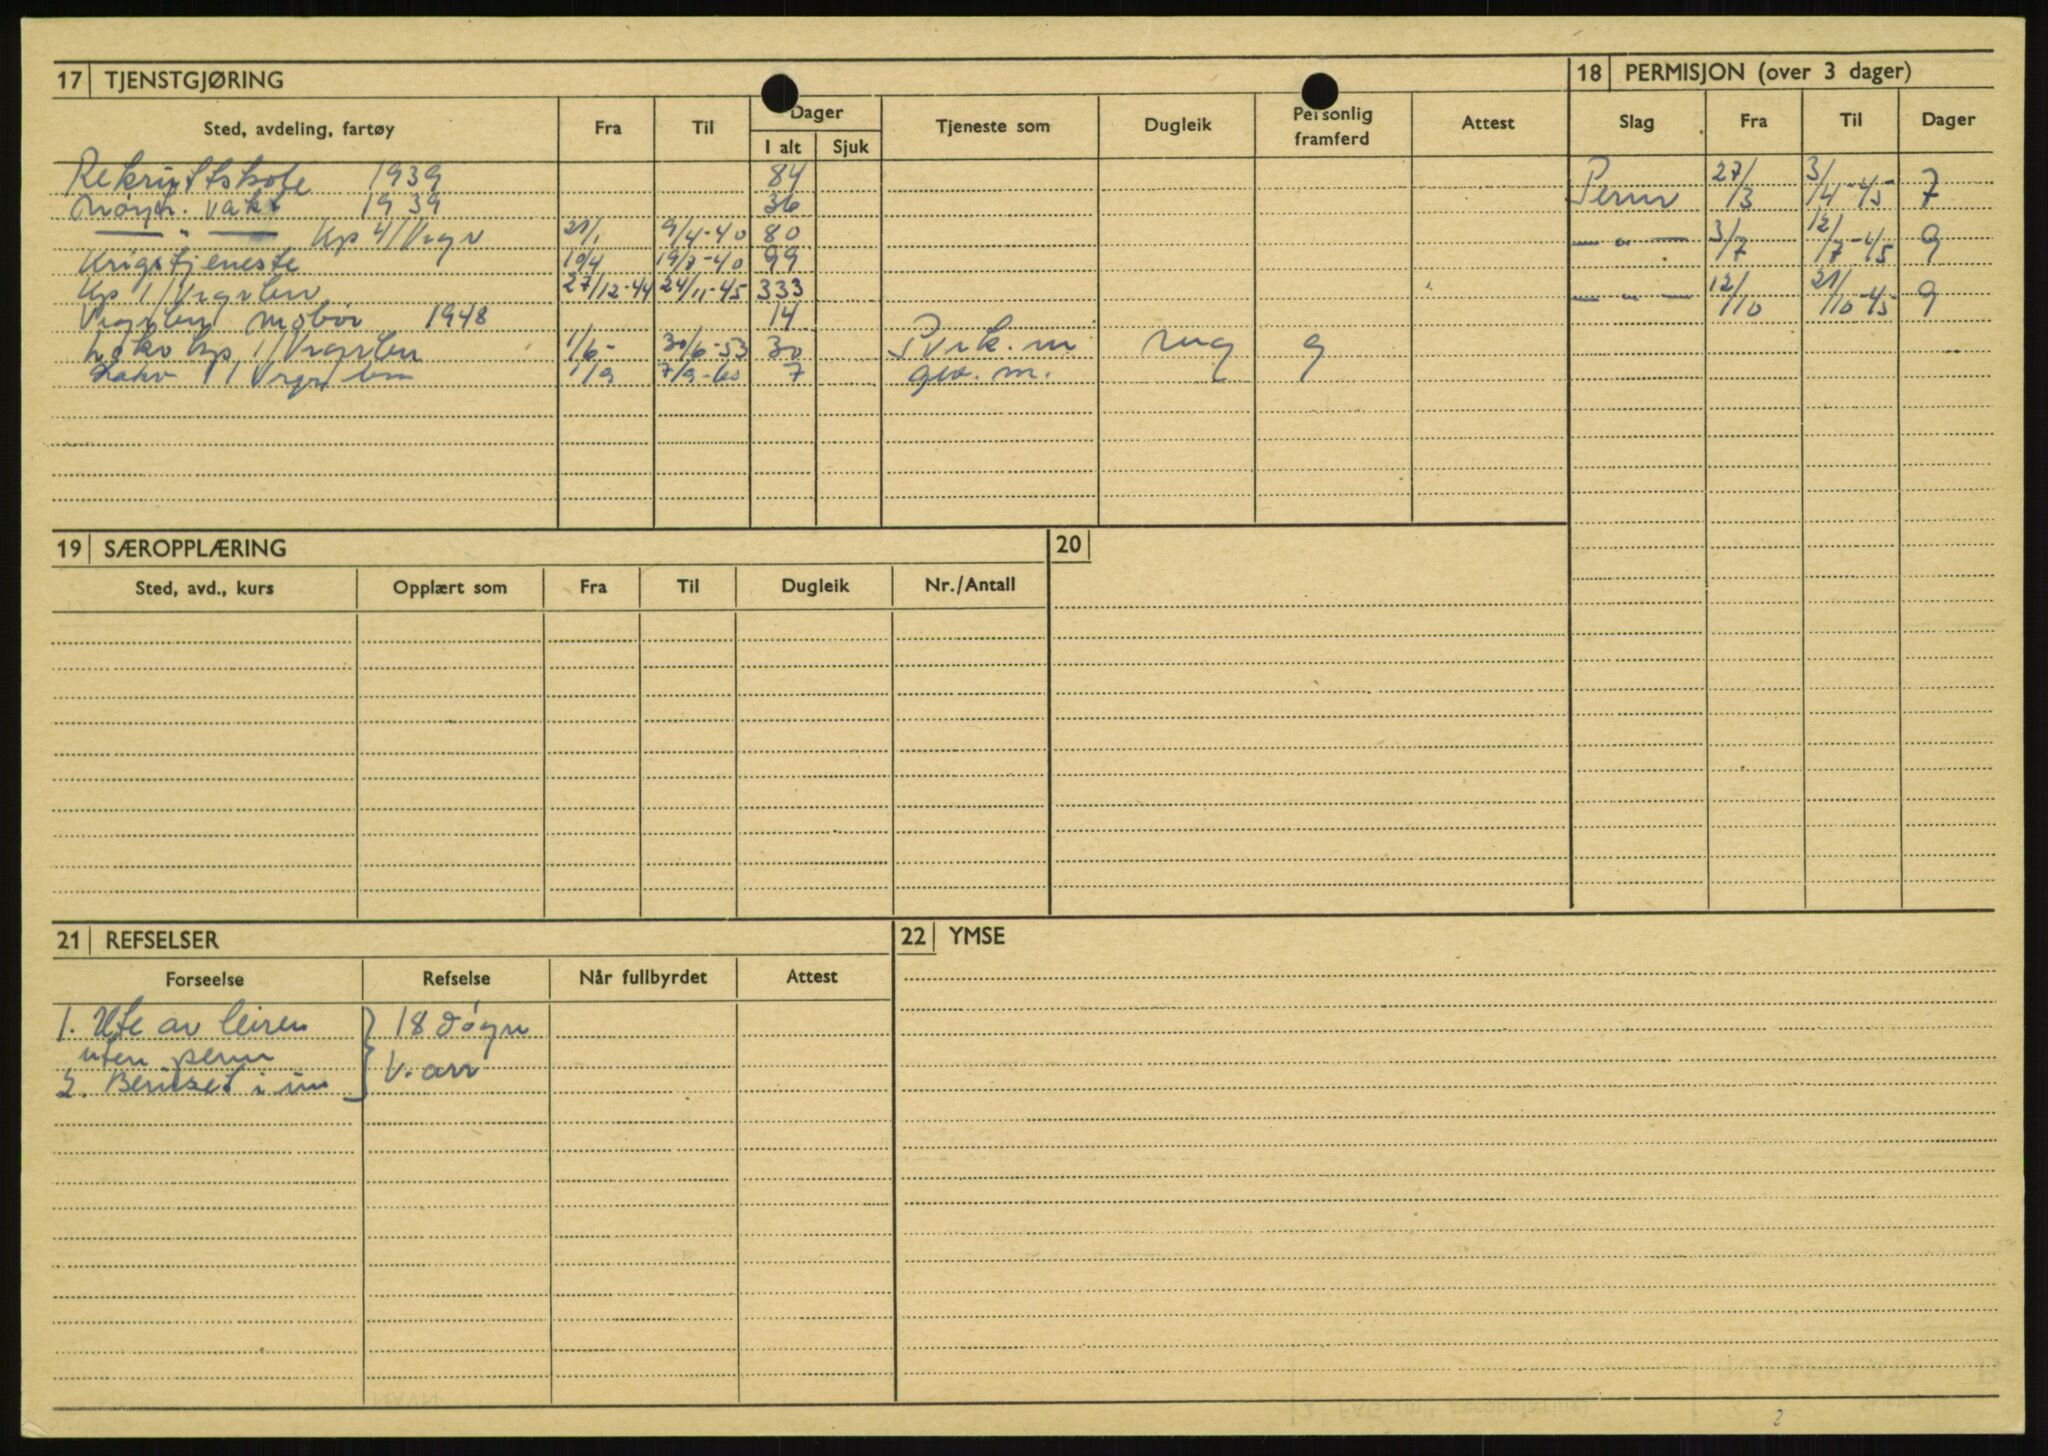 17 TJENSTGJØRING
Sted, avdeling, fartøy Fra Til Dager Tjeneste som Dugleik Personlig framferd Attest
I alt Sjuk
Rekruttskole 1939 84
Nøytr. vakt 1939 36
— " — Kp 4/Vrgr 21/1 9/4-40 80
Krigstjeneste 10/4 19/7-40 99
Kp 1/Vrgrbn 27/12-44 24/11-45 333
Vrgrbn 1948 14
Kp. 1/Vrgrbn 1/6- 30/6-53 30 m mg g
1/Vrgrbn 1/9 7/9-60 7 gev. m.
18 PERMISJON (over 3 dager)
Slag Fra Til Dager
Perm 27/3 3/4-45 7
— " — 3/7 12/7-45 9
— " — 12/10 21/10-45 9
19 SÆROPPLÆRING
Sted, avd., kurs Opplært som Fra Til Dugleik Nr./Antall
20
21 REFSELSER
Forseelse Refselse Når fullbyrdet Attest
1. Ute av leiren } 18 døgn
uten perm
2. Beruset i un } v. arr
22 YMSE
2